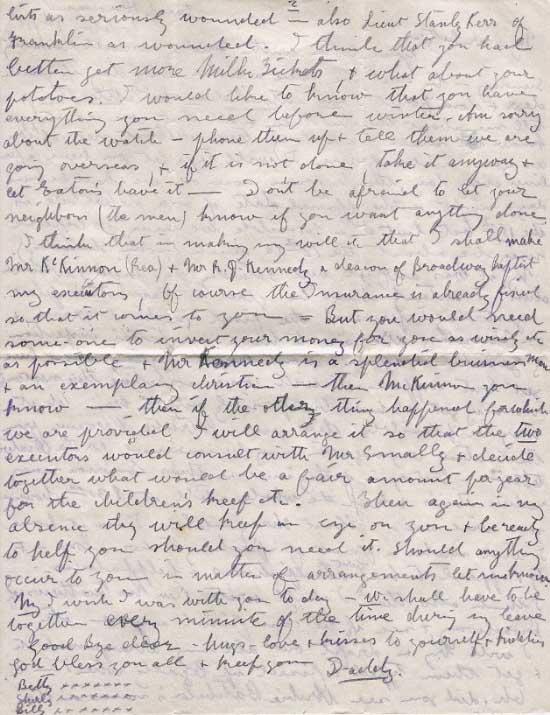 lists as seriously wounded - also Lieut Stanly Kerr of
Franklin as wounded. I think that you had
better get more Milk Tickets, & what about your
potatoes. I would like to know that you have
everything you need before winter. Am sorry
about the watch - phone them up & tell them we are
going overseas, & if it is not done, take it anyway &
let Eaton's have it — Don't be afraid to let your
neighbors (the men) know if you want anything done
I think that in making my will etc that I shall make
Mr McKinnon (Rea) & Mr R. J. Kennedy a deacon of Broadway Baptist
my executors, Of course the Insurance is already fixed
so that it comes to you = But you would need
some-one to invest your money for you as wisely etc
as possible & Mr Kennedy is a splendid business man
& an exemplary christian — then McKinnon you
know — then if the other thing happened for which
we are provided I will arrange it so that the two
executors would consult with Mr Smally & decide
together what would be a fair amount per year
for the children's keep etc. Then again in my
absence they will keep an eye on you & be ready
to help you should you need it. Should anything
occur to you in matter of arrangements let me know
My I wish I was with you to day - We shall have to be
together every minute of the time during my leave
Good bye dear - hugs - love & kisses to yourself & kiddies
God bless you all & keep you Daddy.
Betty xxxxxxx
Sherly xxxxxxx
Billy xxxxxxx